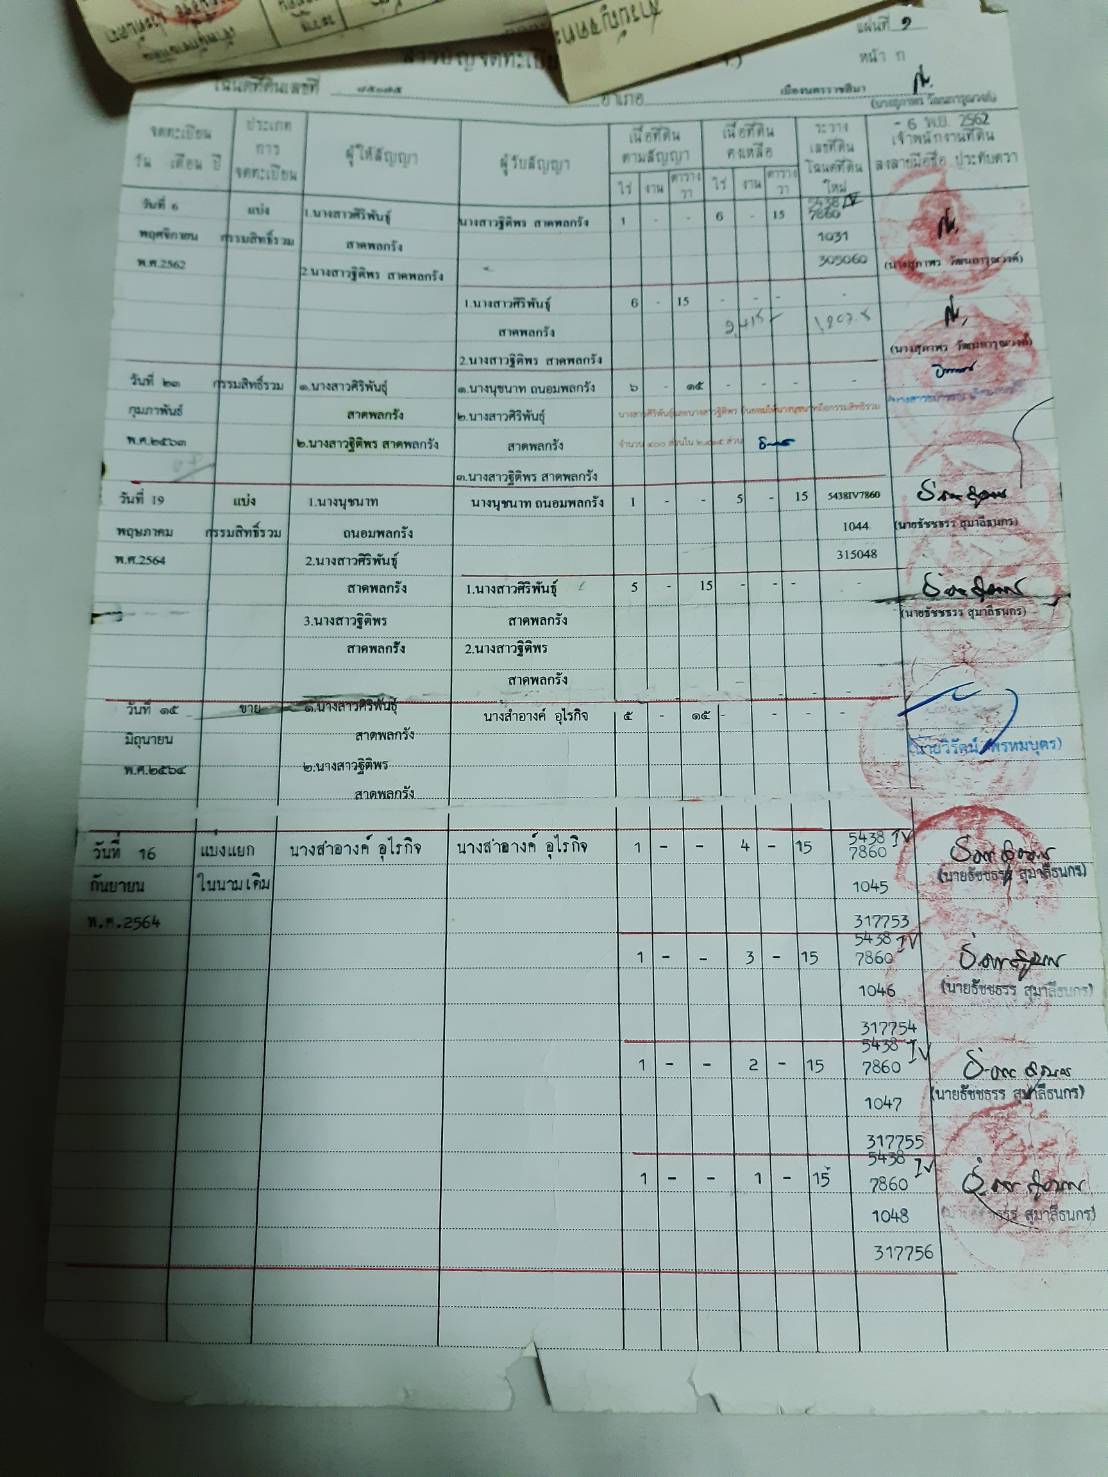 สารบัญจดทะเบียน
แผ่นที่ ๑
หน้า ก
โฉนดที่ดินเลขที่ ๗๕๐๗๕ อำเภอ เมืองนครราชสีมา
(นางสุภาพร วัฒนาวรุณวงค์)
- 6 พ.ย. 2562
จดทะเบียน วัน เดือน ปี
ประเภทการจดทะเบียน
ผู้ให้สัญญา
ผู้รับสัญญา
เนื้อที่ดินตามสัญญา
ไร่ งาน ตารางวา
เนื้อที่ดินคงเหลือ
ไร่ งาน ตารางวา
ระวาง เลขที่ดิน โฉนดที่ดินใหม่
เจ้าพนักงานที่ดิน ลงลายมือชื่อ ประทับตรา
วันที่ 6 แบ่ง 1.นางสาวศิริพันธุ์ นางสาวฐิติพร สาดพลกรัง 1 - - 6 - 15 5438 IV 7860
พฤศจิกายน กรรมสิทธิ์รวม สาดพลกรัง 1031
พ.ศ.2562 2.นางสาวฐิติพร สาดพลกรัง 305060
1.นางสาวศิริพันธุ์ 6 - 15 - - - -
สาดพลกรัง
2.นางสาวฐิติพร สาดพลกรัง
วันที่ ๒๑ กรรมสิทธิ์รวม ๑.นางสาวศิริพันธุ์ ๑.นางนุชนาท ถนอมพลกรัง ๖ - ๑๕ - - - -
กุมภาพันธ์ สาดพลกรัง ๒.นางสาวศิริพันธุ์
พ.ศ.๒๕๖๓ ๒.นางสาวฐิติพร สาดพลกรัง สาดพลกรัง
๓.นางสาวฐิติพร สาดพลกรัง
วันที่ 19 แบ่ง 1.นางนุชนาท นางนุชนาท ถนอมพลกรัง 1 - - 5 - 15 5438IV7860
พฤษภาคม กรรมสิทธิ์รวม ถนอมพลกรัง 1044 (นายธัชชธรร สุมาลีธนกร)
พ.ศ.2564 2.นางสาวศิริพันธุ์ 315048
สาดพลกรัง 1.นางสาวศิริพันธุ์ 5 - 15 - - - -
3.นางสาวฐิติพร สาดพลกรัง (นายธัชชธรร สุมาลีธนกร)
สาดพลกรัง 2.นางสาวฐิติพร
สาดพลกรัง
วันที่ ๑๕ ขาย ๑.นางสาวศิริพันธุ์ นางสำอางค์ อุไรกิจ ๕ - ๑๕ - - - -
มิถุนายน สาดพลกรัง (นายวิรัตน์ พรหมบุตร)
พ.ศ.๒๕๖๔ ๒.นางสาวฐิติพร
สาดพลกรัง
วันที่ 16 แบ่งแยก นางสำอางค์ อุไรกิจ นางสำอางค์ อุไรกิจ 1 - - 4 - 15 5438 IV 7860
กันยายน ในนามเดิม 1045 (นายธัชชธรร สุมาลีธนกร)
พ.ศ.2564 317753
1 - - 3 - 15 5438 IV 7860
1046 (นายธัชชธรร สุมาลีธนกร)
317754
1 - - 2 - 15 5438 IV 7860
1047 (นายธัชชธรร สุมาลีธนกร)
317755
1 - - 1 - 15 5438 IV 7860
1048 สุมาลีธนกร)
317756